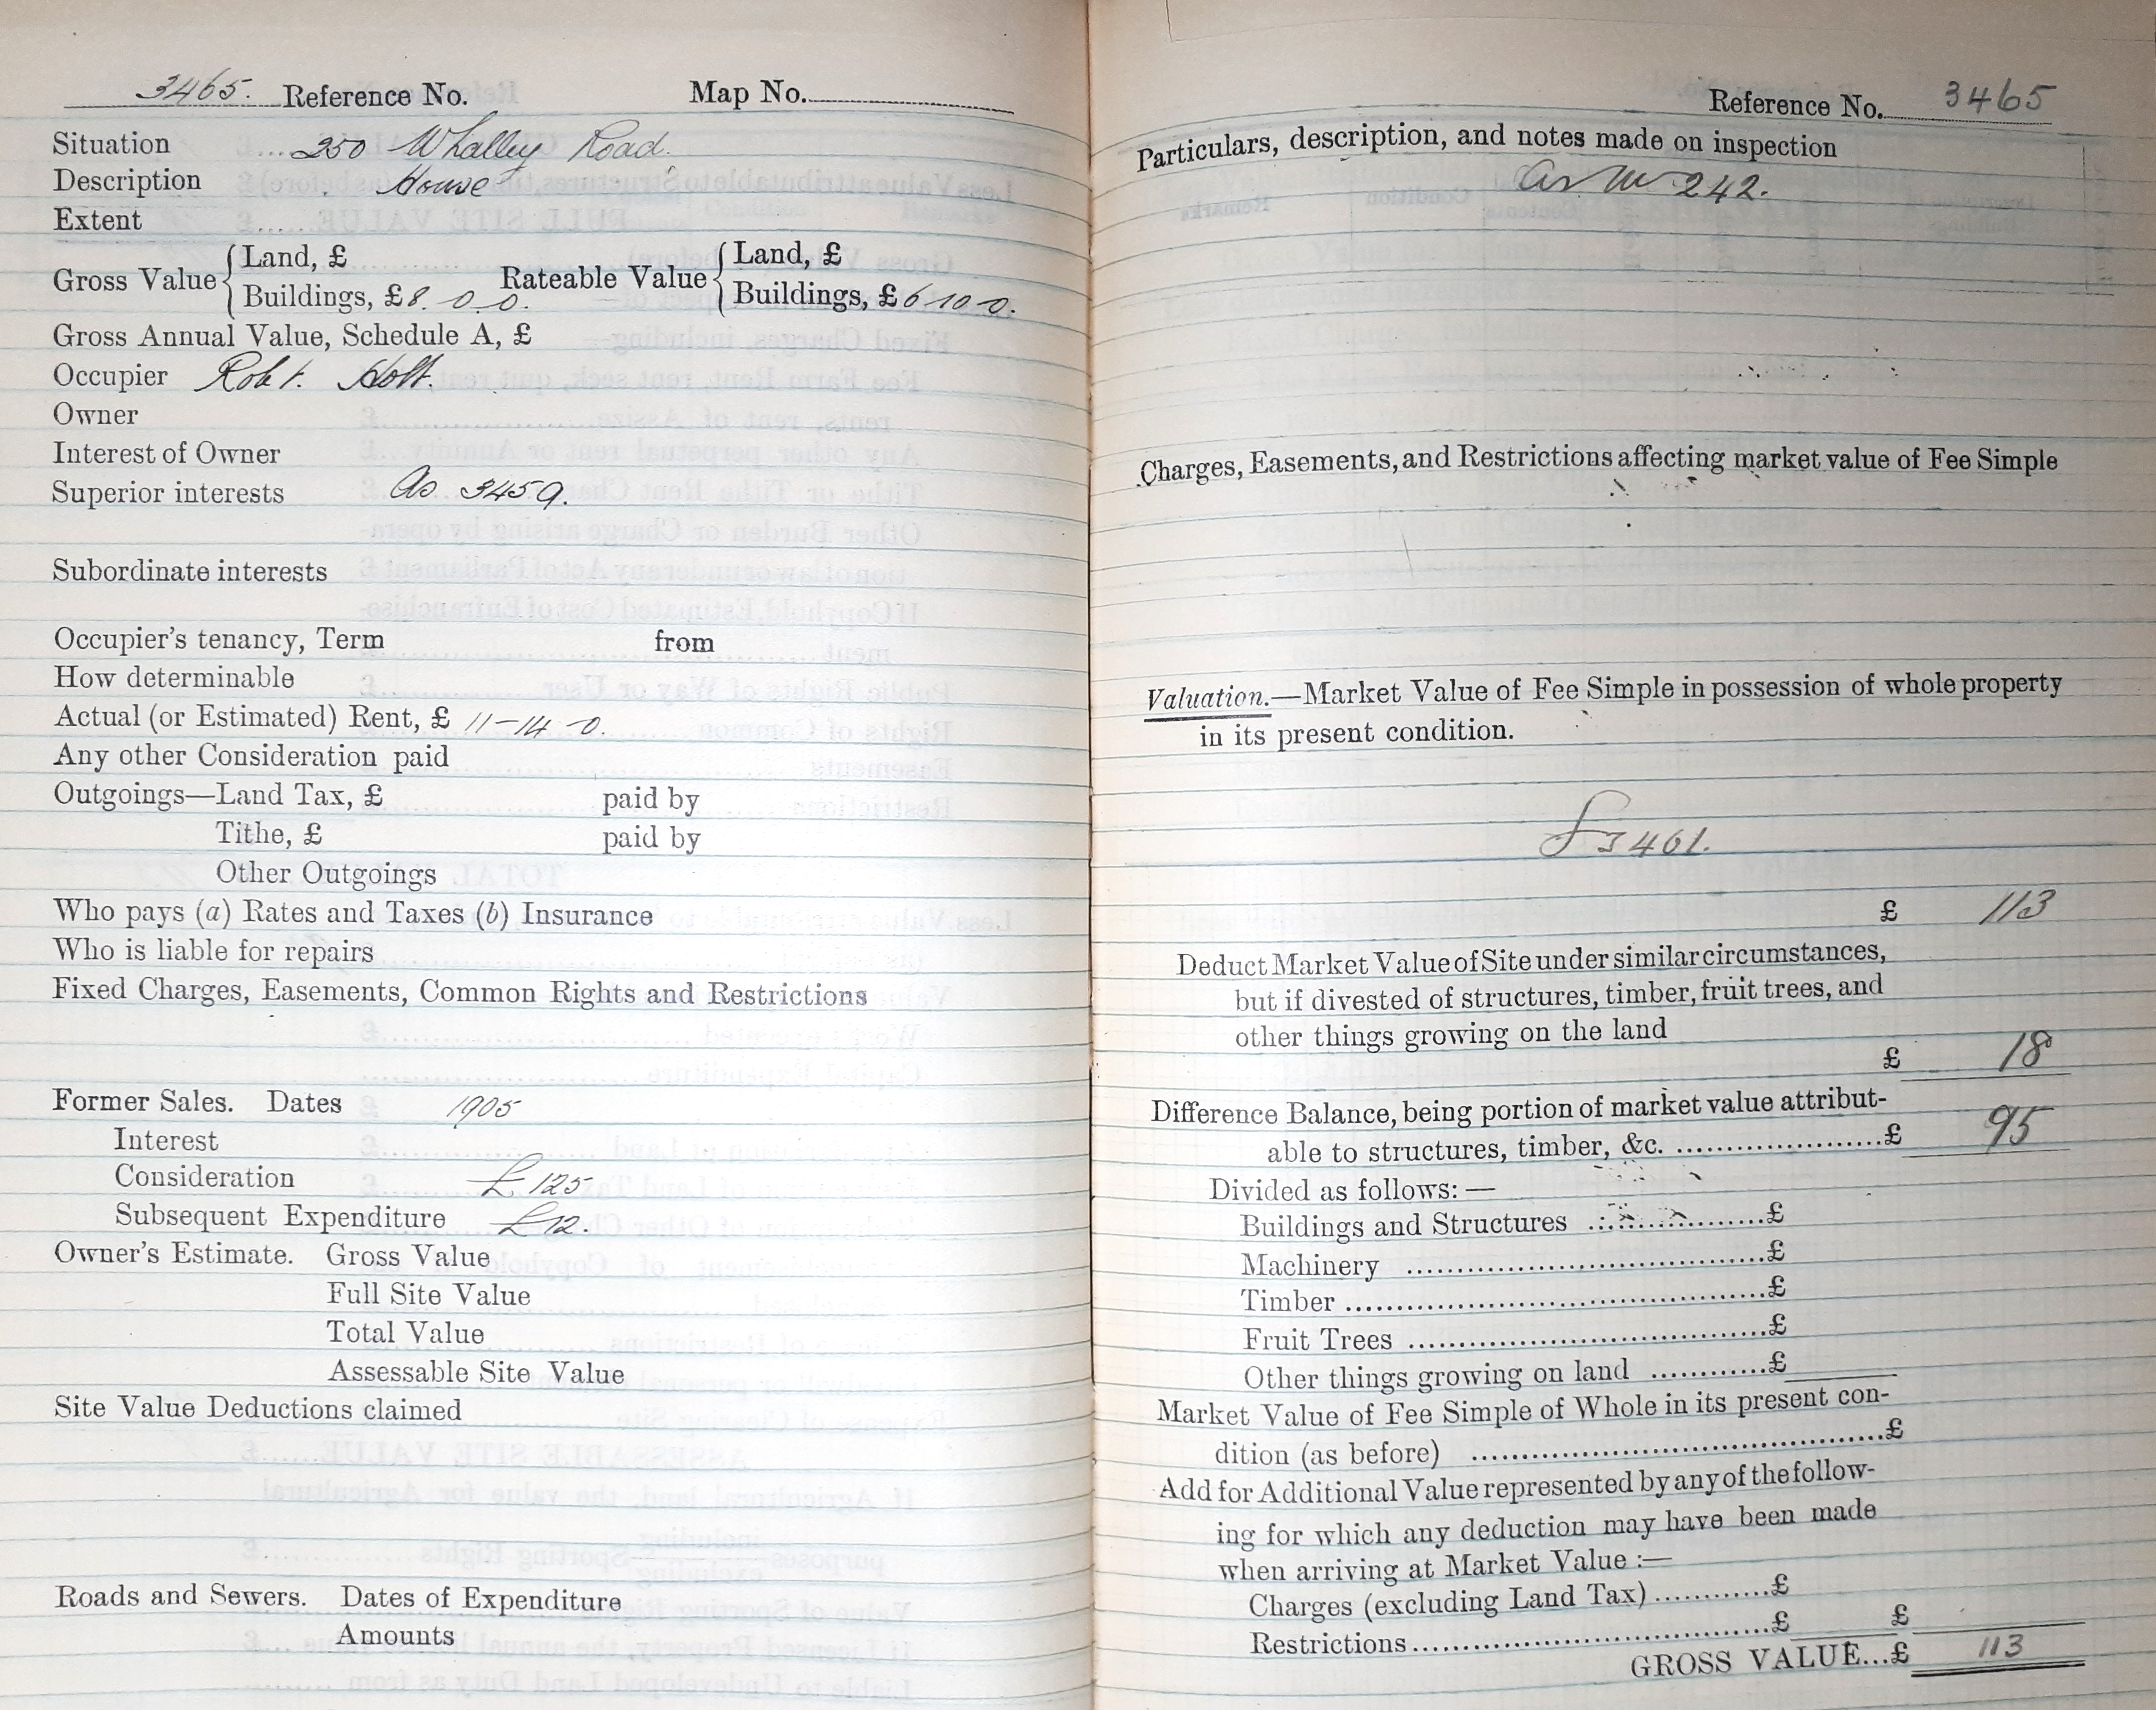 3465. Reference No. Map No.
Situation 250 Whalley Road.
Description House
Extent
Gross Value { Land, £ Rateable Value { Land, £
Buildings, £ 8. 0. 0. Buildings, £ 6-10-0.
Gross Annual Value, Schedule A, £
Occupier Robt. Holt.
Owner
Interest of Owner
Superior interests As 3459.
Subordinate interests
Occupier's tenancy, Term from
How determinable
Actual (or Estimated) Rent, £ 11-14-0.
Any other Consideration paid
Outgoings—Land Tax, £ paid by
Tithe, £ paid by
Other Outgoings
Who pays (a) Rates and Taxes (b) Insurance
Who is liable for repairs
Fixed Charges, Easements, Common Rights and Restrictions
Former Sales. Dates 1905
Interest
Consideration £125
Subsequent Expenditure £12.
Owner's Estimate. Gross Value
Full Site Value
Total Value
Assessable Site Value
Site Value Deductions claimed
Roads and Sewers. Dates of Expenditure
Amounts
Reference No. 3465
Particulars, description, and notes made on inspection
242.
Charges, Easements, and Restrictions affecting market value of Fee Simple
Valuation.—Market Value of Fee Simple in possession of whole property
in its present condition.
£ 113
Deduct Market Value of Site under similar circumstances,
but if divested of structures, timber, fruit trees, and
other things growing on the land
£ 18
Difference Balance, being portion of market value attribut-
able to structures, timber, &c. ....................£ 95
Divided as follows:—
Buildings and Structures ....................£
Machinery ....................£
Timber ....................£
Fruit Trees ....................£
Other things growing on land ...........£
Market Value of Fee Simple of Whole in its present con-
dition (as before) ....................£
Add for Additional Value represented by any of the follow-
ing for which any deduction may have been made
when arriving at Market Value :—
Charges (excluding Land Tax) ............£
Restrictions ....................£ £
GROSS VALUE...£ 113